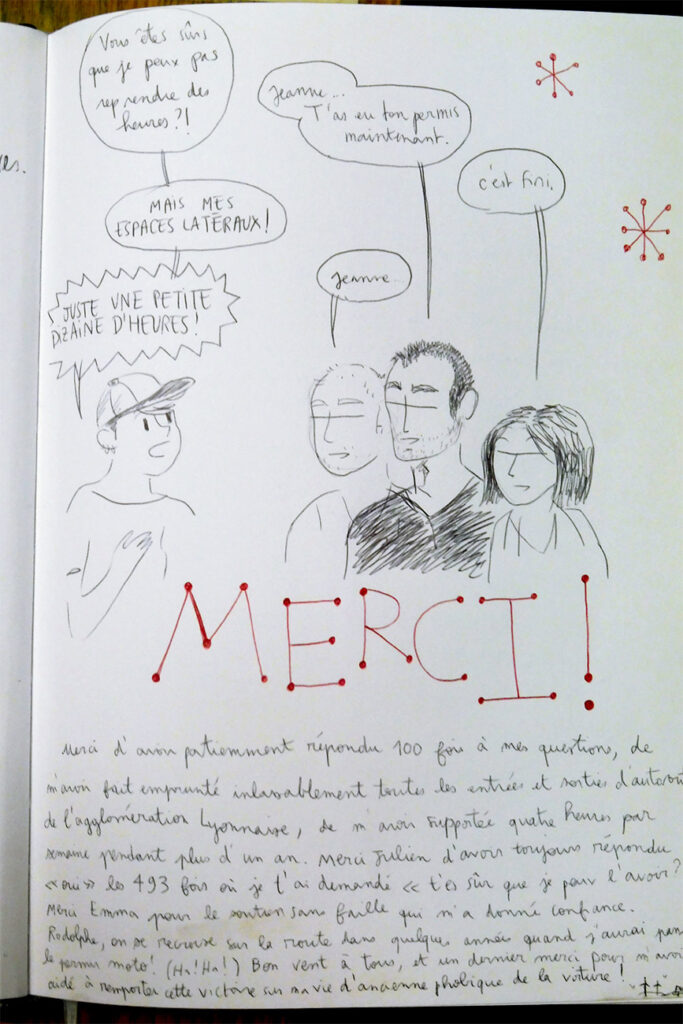 es.
Vous êtes sûrs
que je peux pas
reprendre des
heures?!
MAIS MES
ESPACES LATÉRAUX!
JUSTE UNE PETITE
DIZAINE D'HEURES!
Jeanne...
T'as eu ton permis
maintenant.
Jeanne...
c'est fini.
MERCI!
Merci d'avoir patiemment répondu 100 fois à mes questions, de
m'avoir fait emprunté inlassablement toutes les entrées et sorties d'autorout
de l'agglomération Lyonnaise, de m'avoir supportée quatre heures par
semaine pendant plus d'un an. Merci Julien d'avoir toujours répondu
«oui» les 493 fois où je t'ai demandé «t'es sûr que je peux l'avoir?
Merci Emma pour le soutien sans faille qui m'a donné confiance.
Rodolphe, on se recroise sur la route dans quelques années quand j'aurai pass
le permis moto! (Ha! Ha!) Bon vent à tous, et un dernier merci pour m'avoir
aidé à remporter cette victoire sur ma vie d'ancienne phobique de la voiture!